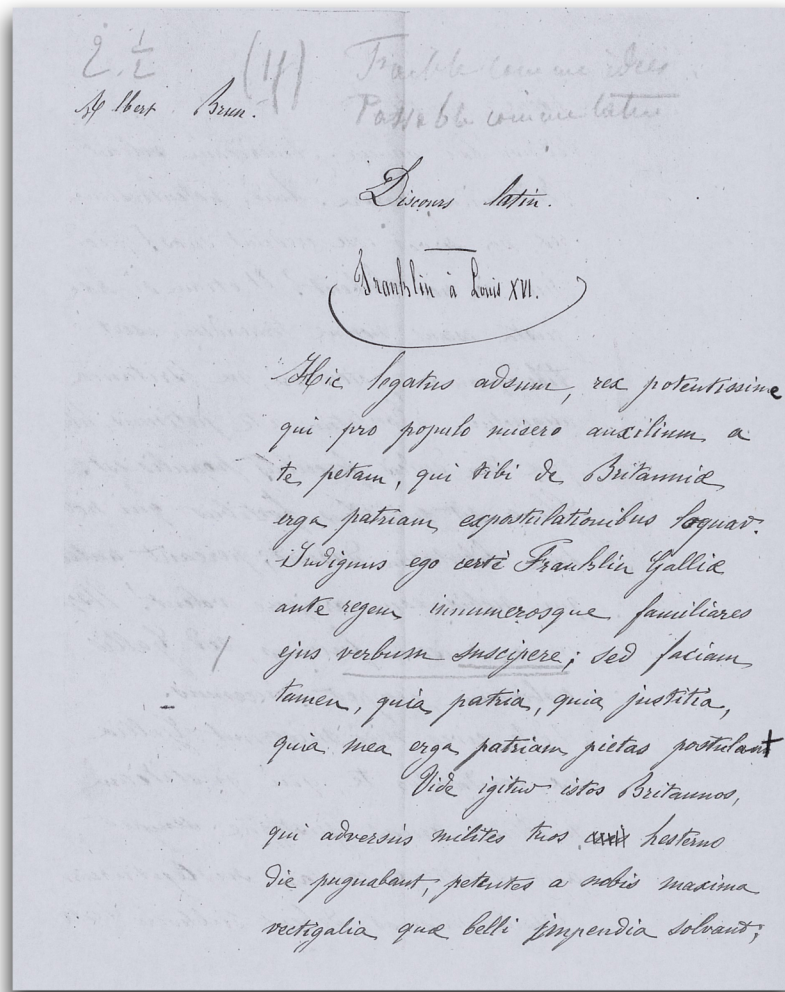 2. 1/2 (11) Faible comme idées
Albert Brun. Passable comme latin
Discours latin.
Franklin à Louis XVI.
Hic legatus adsum, rex potentissime
qui pro populo misero auxilium a
te petam, qui tibi de Britanniæ
erga patriam expostulationibus loquar.
Indignus ego certè Franklin Galliæ
ante regem innumerosque familiares
ejus verbum suscipere; sed faciam
tamen, quia patria, quia justitia,
quia mea erga patriam pietas postulant
Vide igitur istos Britannos,
qui adversùs milites tuos hesterno
die pugnabant, petentes a nobis maxima
vectigalia quæ belli impendia solvant;